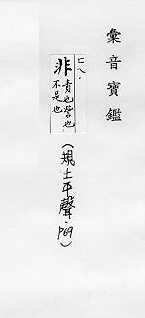 彙音寶鑑
七八.
非 責也訾也
不是也
(規上平聲.P69)